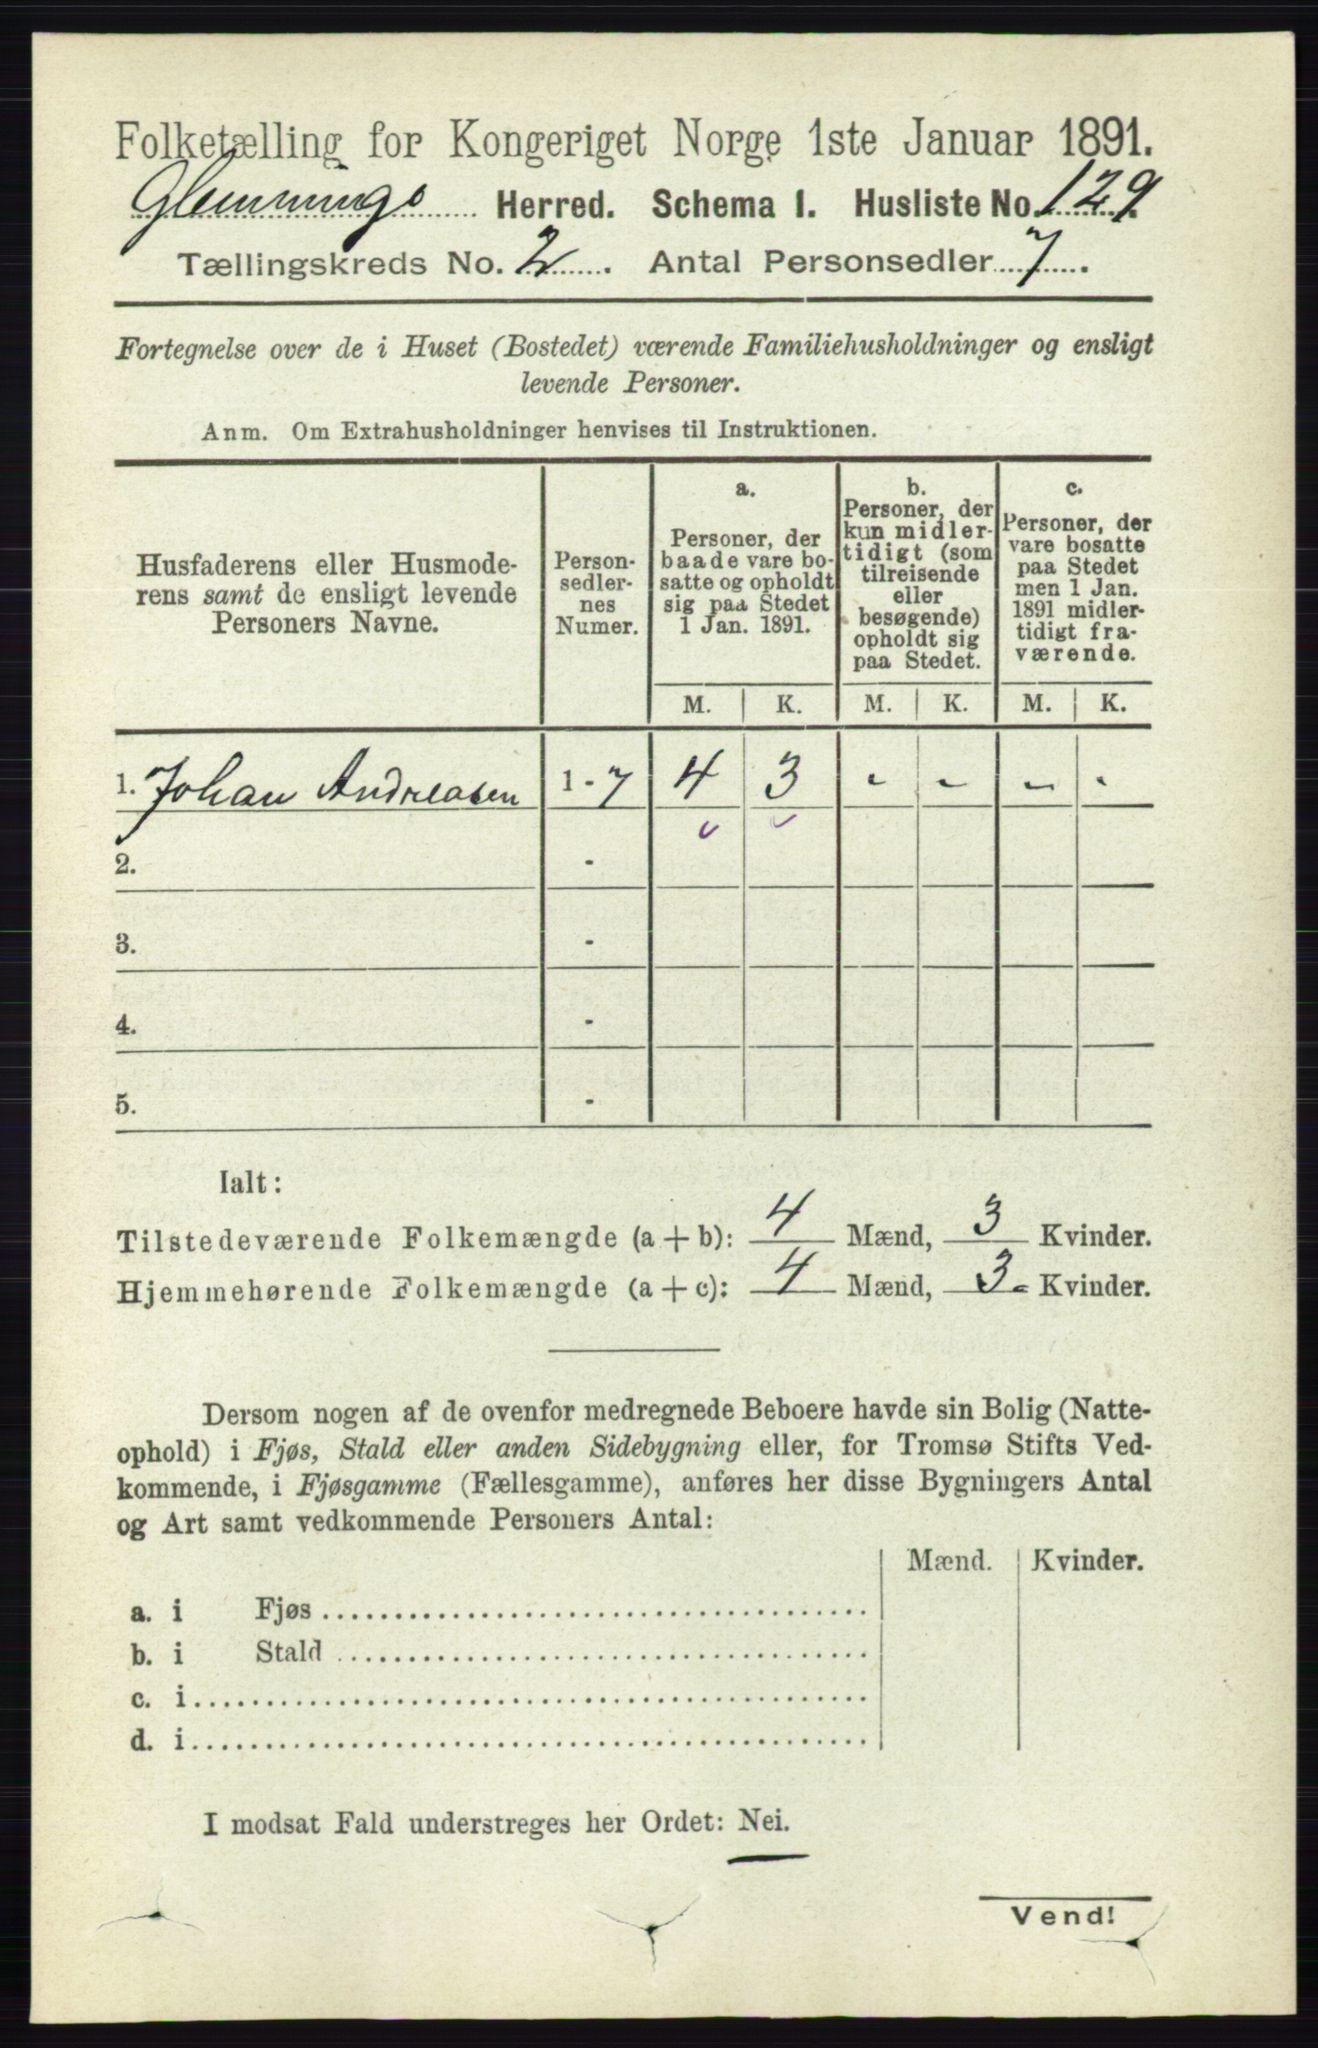 Folketælling for Kongeriget Norge 1ste Januar 1891.
Glemminge Herred. Schema 1. Husliste No. 129.
Tællingskreds No. 2. Antal Personsedler 7.
Fortegnelse over de i Huset (Bostedet) værende Familiehusholdninger og ensligt
levende Personer.
Anm. Om Extrahusholdninger henvises til Instruktionen.
Husfaderens eller Husmode-
rens samt de ensligt levende
Personers Navne.
Person-
sedler-
nes
Numer.
a.
Personer, der
baade vare bo-
satte og opholdt
sig paa Stedet
1 Jan. 1891.
b.
Personer, der
kun midler-
tidigt (som
tilreisende
eller
besøgende)
opholdt sig
paa Stedet.
c.
Personer, der
vare bosatte
paa Stedet
men 1 Jan.
1891 midler-
tidigt fra-
værende.
M. K. M. K. M. K.
1. Johan Andreasen 1 - 7 4 3 - - - -
2. -
3. -
4. -
5. -
Ialt:
Tilstedeværende Folkemængde (a + b): 4 Mænd, 3 Kvinder.
Hjemmehørende Folkemængde (a + c): 4 Mænd, 3 Kvinder.
Dersom nogen af de ovenfor medregnede Beboere havde sin Bolig (Natte-
ophold) i Fjøs, Stald eller anden Sidebygning eller, for Tromsø Stifts Ved-
kommende, i Fjøsgamme (Fællesgamme), anføres her disse Bygningers Antal
og Art samt vedkommende Personers Antal:
Mænd. Kvinder.
a. i Fjøs
b. i Stald
c. i
d. i
I modsat Fald understreges her Ordet: Nei.
Vend!